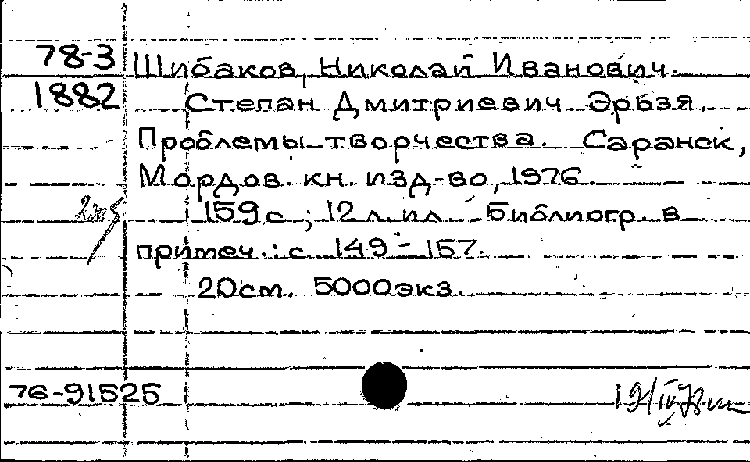 78-3 Шибаков, Николай Иванович.
1882 Степан Дмитриевич Эрьзя.
Проблемы творчества. Саранск,
Мордов. кн. изд-во, 1976
159 с.; 12 л. ил. Библиогр. в
примеч.: с. 149-157.
20см. 5000экз.
76-91525